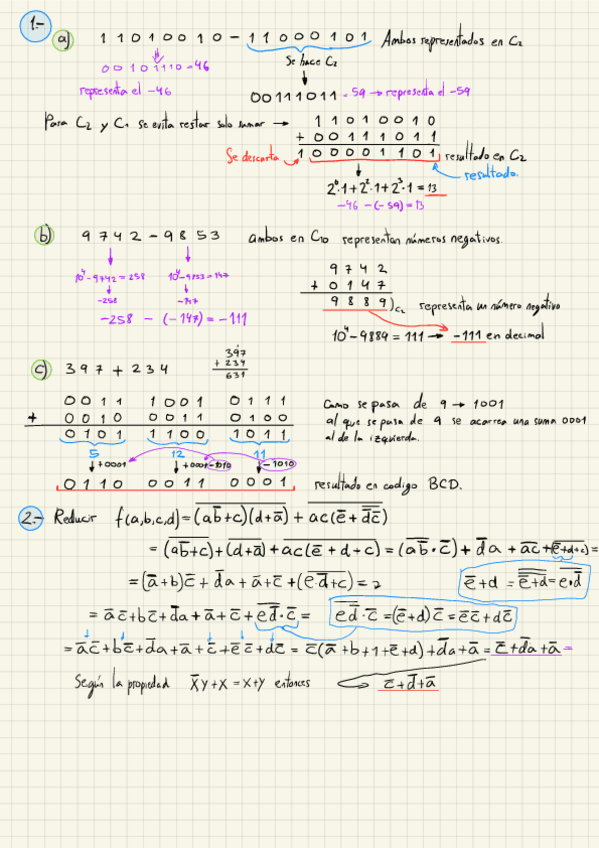 1.-
a) 1 1 0 1 0 0 1 0 - 1 1 0 0 0 1 0 1 Ambos representados en C₂
0 0 1 0 1 1 1 0 = 46
Se hace C₂
representa el -46
0 0 1 1 1 0 1 1 = 59 → representa el -59
Para C₂ y C₁ se evita restar solo sumar → 1 1 0 1 0 0 1 0
+ 0 0 1 1 1 0 1 1
Se descarta 1 0 0 0 0 1 1 0 1 resultado en C₂
resultado.
2⁰·1+2²·1+2³·1 = 13
-46 -(-59) = 13
b) 9 7 4 2 - 9 8 5 3 ambos en C₁₀ representan números negativos.
10⁴-9742=258 10⁴-9853=147
-258 -147
-258 - (-147) = -111
9 7 4 2
+ 0 1 4 7
9 8 8 9)C₂ representa un número negativo
10⁴-9889 = 111 → -111 en decimal
c) 3 9 7 + 2 3 4
397
+ 234
631
0 0 1 1 1 0 0 1 0 1 1 1
+ 0 0 1 0 0 0 1 1 0 1 0 0
0 1 0 1 1 1 0 0 1 0 1 1
5 12 11
+0001 +0001-1010 -1010
0 1 1 0 0 0 1 1 0 0 0 1 resultado en codigo BCD.
Como se pasa de 9 → 1001
al que se pasa de 9 se acarrea una suma 0001
al de la izquierda.
2.- Reducir f(a,b,c,d) = \overline{(a\overline{b}+c)(d+\overline{a})} + \overline{ac(\overline{e}+\overline{\overline{d}\overline{c}})}
= \overline{(a\overline{b}+c)}+\overline{(d+\overline{a})}+\overline{ac(\overline{e}+d+c)} = (\overline{a\overline{b}}·\overline{c})+\overline{d}a+\overline{ac}+\overline{(\overline{e}+d+c)} =
= (\overline{a}+b)\overline{c}+\overline{d}a+\overline{a}+\overline{c}+\overline{(\overline{e·\overline{d}}+c)} = 2
\overline{e}+d = \overline{\overline{\overline{e}+d}} = \overline{e·\overline{d}}
= \overline{a}\overline{c}+b\overline{c}+\overline{d}a+\overline{a}+\overline{c}+\overline{e\overline{d}}·\overline{c} =
\overline{e\overline{d}}·\overline{c} = (\overline{e}+d)\overline{c} = \overline{e}\overline{c}+d\overline{c}
= \overline{a}\overline{c}+b\overline{c}+\overline{d}a+\overline{a}+\overline{c}+\overline{e}\overline{c}+d\overline{c} = \overline{c}(\overline{a}+b+1+\overline{e}+d)+\overline{d}a+\overline{a} = \overline{c}+\overline{d}a+\overline{a} =
Según la propiedad \overline{x}y+x = x+y entonces \overline{c}+\overline{d}+\overline{a}